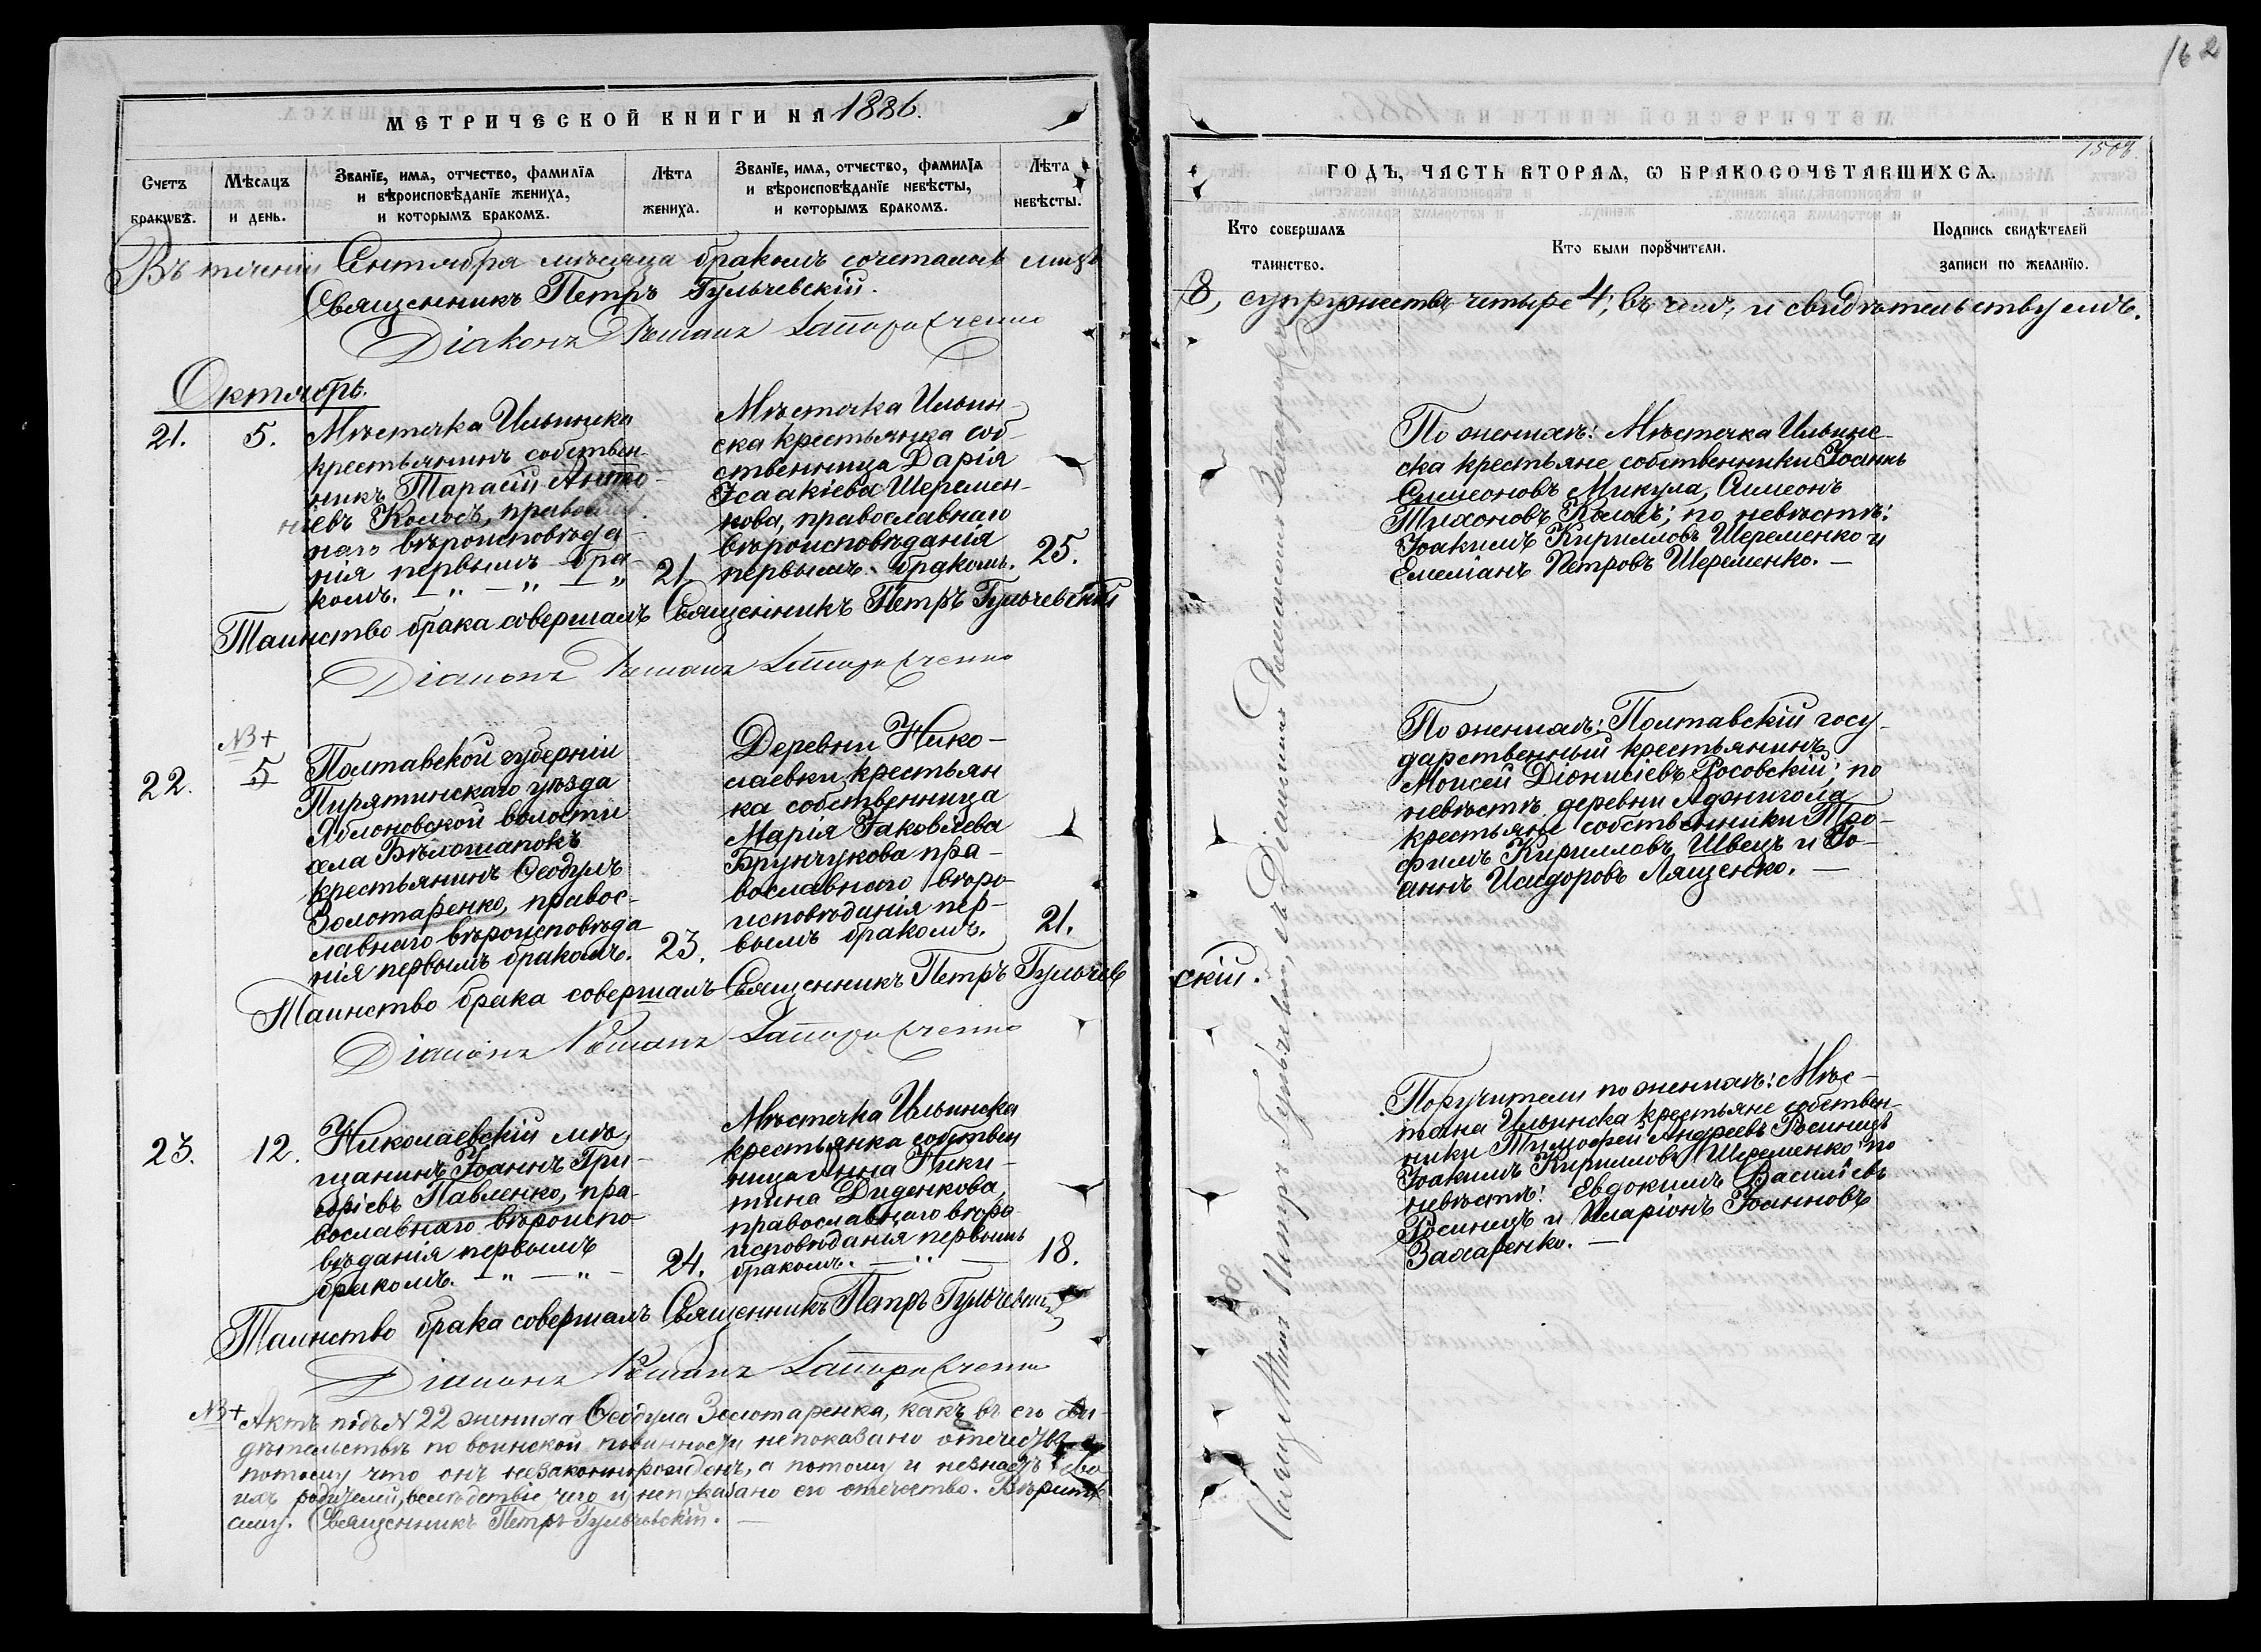 МЕТРИЧЕСКОЙ КНИГИ НА 1886.
Счетъ браковъ.
Мѣсяцъ и день.
Званіе, имя, отчество, фамилія и вѣроисповѣданіе жениха, и которымъ бракомъ.
Лѣта жениха.
Званіе, имя, отчество, фамилія и вѣроисповѣданіе невѣсты, и которымъ бракомъ.
Лѣта невѣсты.
Въ теченіи Сентября мѣсяца бракомъ сочеталось лицъ
Священникъ Петръ Гульчевскій.
Діаконъ Романъ
Октябрь.
21.
5.
Мѣстечка Ильинска
крестьянинъ собствен-
никъ Тарасій Анто-
ніевъ Колосъ, православ
наго вѣроисповѣда-
нія первымъ бра-
комъ. — „ — „ — „
21.
Мѣстечка Ильин-
ска крестьянка соб-
ственница Дарія
Ісаакіева Шеремен-
кова, православнаго
вѣроисповѣданія
первымъ бракомъ.
25.
Таинство брака совершалъ Священникъ Петръ Гульчевскій
Діаконъ Романъ
№+
22.
5
Полтавской губерніи
Пирятинскаго уѣзда
Яблоновской волости
села Бѣлошапокъ
крестьянинъ Ѳеодулъ
Золотаренко, правос-
лавнаго вѣроисповѣда
нія первымъ бракомъ.
23.
Деревни Нико-
лаевки крестьян
ка собственница
Марія Іаковлева
Брунчукова пра-
вославнаго вѣро-
исповѣданія пер-
вымъ бракомъ.
21.
Таинство брака совершалъ Священникъ Петръ Гульчев
Діаконъ Романъ
23.
12.
Николаевскій мѣ-
щанинъ Іоаннъ Гри-
горіевъ Павленко, пра-
вославнаго вѣроиспо-
вѣданія первымъ
бракомъ. — „ — „ —
24.
Мѣстечка Ильинска
крестьянка собствен
ница Анна Ники-
тина Диденкова,
православнаго вѣро
исповѣданія первымъ
бракомъ. — „ —
18.
Таинство брака совершалъ Священникъ Петръ Гульчевскій
Діаконъ Романъ
№+ Актъ подъ N 22 жениха Ѳеодула Золотаренка, какъ въ его сви-
дѣтельствѣ по воинской повинности непоказано отчества
потому что онъ незаконнорожденъ, а потому и незнаетъ сво
ихъ родителей, вслѣдствіе чего и непоказано его отчество.
Священникъ Петръ Гульчевскій. —
162
1508.
ГОДЪ, ЧАСТЬ ВТОРАЯ, Ѡ БРАКОСОЧЕТАВШИХСЯ.
Кто совершалъ таинство.
Кто были поручители.
Подпись свидѣтелей записи по желанію.
8, супружествъ четыре 4; въ чемъ, и свидѣтельствуемъ.
По женихѣ: Мѣстечка Ильинс-
ска крестьяне собственники Іоаннъ
Симеоновъ Микула, Симеонъ
Тихоновъ Колосъ; по невѣстѣ:
Іоакимъ Кирилловъ Шеременко и
Емеліанъ Петровъ Шеременко. —
По женихѣ: Полтавскій госу-
дарственный крестьянинъ
Моисей Діонисіевъ Росовскій; по
невѣстѣ деревни Аджигола
крестьяне собственники Тро-
фимъ Кирилловъ Швецъ и Іо-
аннъ Исидоровъ Лященко. —
скій.
Поручители по женихѣ: Мѣс-
течка Ильинска крестьяне собствен-
ники Тимоѳей Андреевъ Росинецъ
Іоакимъ Кирилловъ Шеременко по
невѣстѣ: Евдокимъ Василіевъ
Росинецъ и Иларіонъ Іоанновъ
Захаренко. —
Петръ Гульчевскій, съ Діакономъ Романомъ